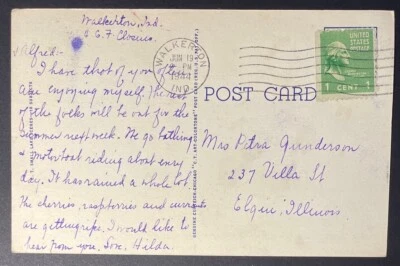 Walkerton, Ind.
Alfred:-
I have thot of you often
am enjoying myself. The rest
of the folks will be out for the
summer next week. We go bathing
& motorboat riding about every
day. It has rained a whole lot.
The cherries, raspberries and currants
are getting ripe. I would like to
hear from you. Love, Hilda.
WALKERTON
JUN 19
PM
IND
UNITED STATES POSTAGE
1 CENT 1
POST CARD
Mrs Petra Gunderson
237 Villa St
Elgin, Illinois.